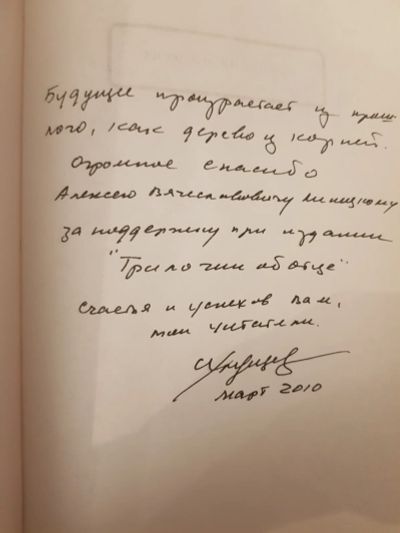 Будущее произрастает из прош
лого, как дерево из корней.
Огромное спасибо
Алексею Вячеславовичу
за поддержку при издании
"Трилогии об отце"
Счастья и успехов Вам,
мои читатели.
март 2010